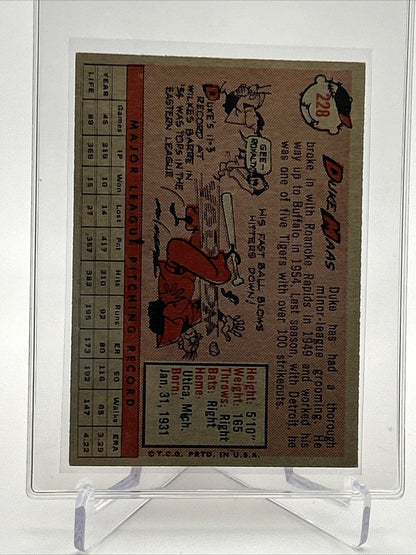 228
DUKE MAAS
Duke has had a thorough
minor-league grooming. He
broke in with Roanoke Rapids in 1949 and worked his
way up to Buffalo in 1954. Last season, with Detroit, he
was one of five Tigers with over 100 strikeouts.
DUKE'S
RECORD AT
WILKES BARRE IN
'54 WAS TOPS IN THE
EASTERN LEAGUE.
GEE
ROYALTY!
HIS FAST BALL BLOWS
HITTERS DOWN.
Weight: 5'10"
Weight: 165
Throws: Right
Bats: Right
Home:
Utica, Mich.
Born:
Jan. 31, 1931
MAJOR LEAGUE PITCHING RECORD
Games IP Won Lost Pct Hits Runs ER SO Walks ERA
YEAR 45 219 10 14 .417 210 92 80 116 65 3.29
LIFE 89 369 15 27 .357 382 195 173 192 147 4.22
© T.C.G. PRTD. IN U.S.A.